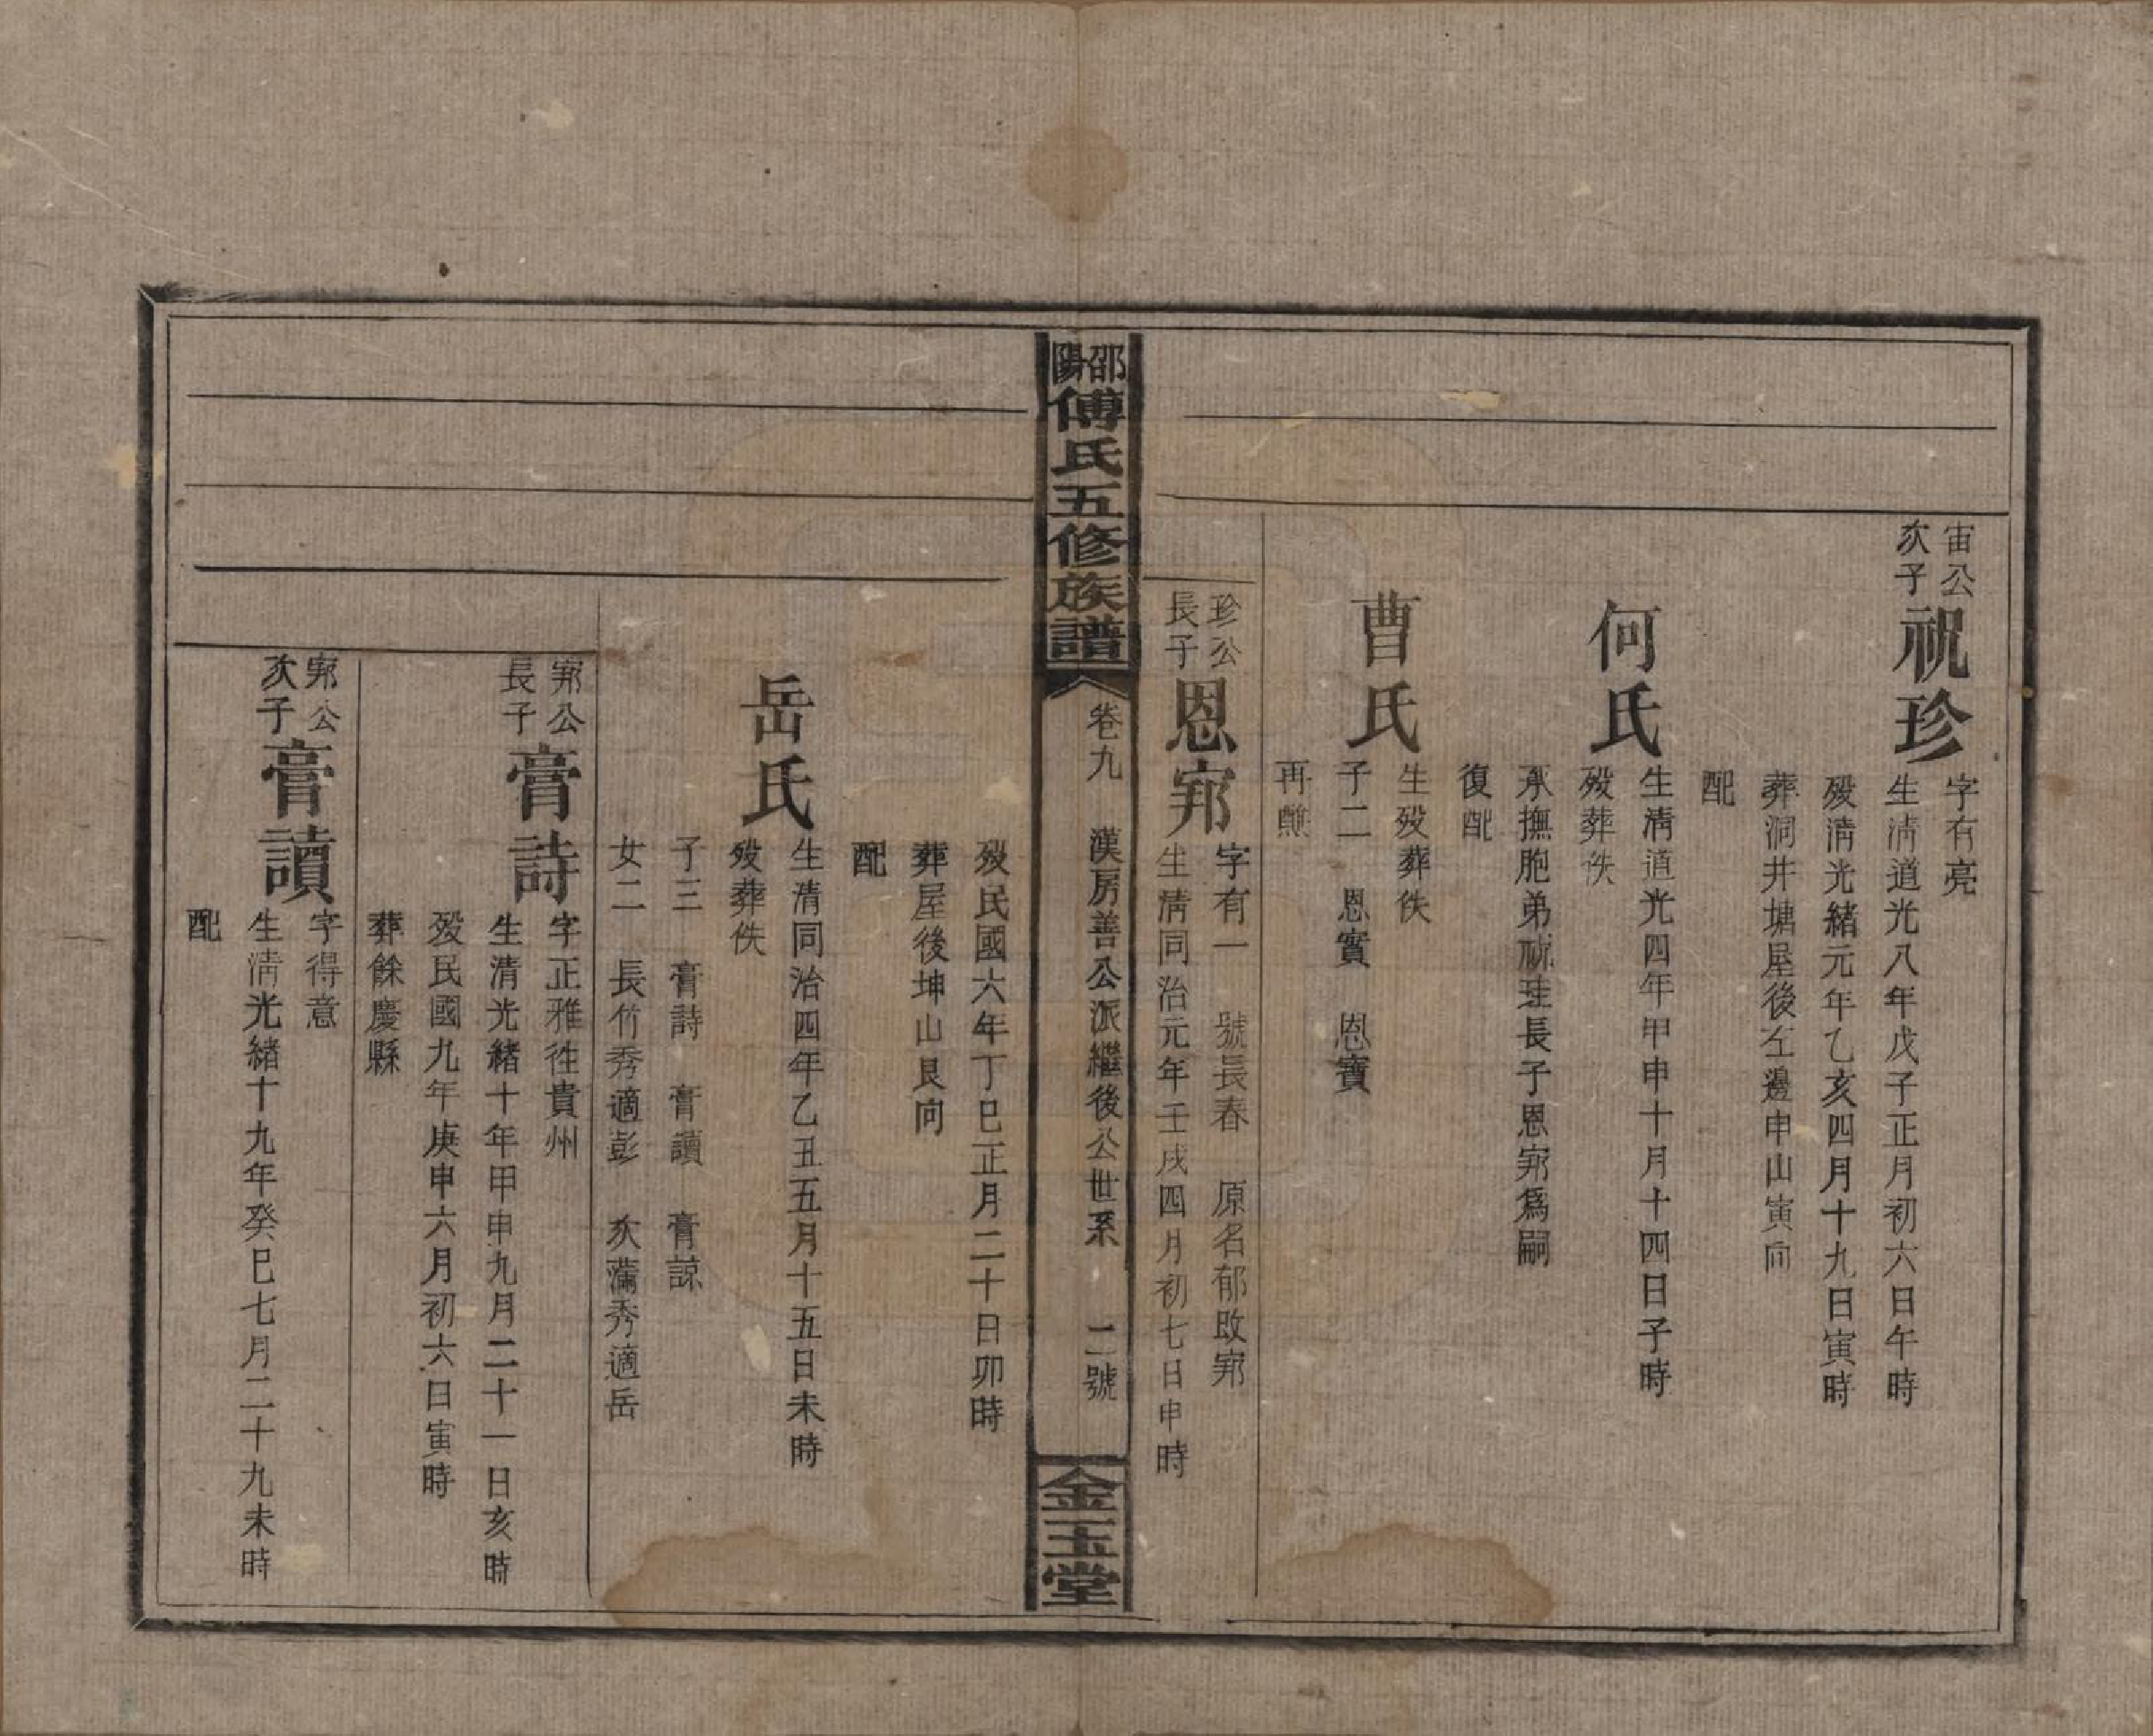 宙公
次子
祝珍
字有亮
生清道光八年戊子正月初六日午時
歿清光緒元年乙亥四月十九日寅時
葬洞井塘屋後左邊申山寅向
配
何氏
生清道光四年甲申十月十四日子時
歿葬佚
承撫胞弟祝珪長子恩寀爲嗣
復配
曹氏
生歿葬佚
子二 恩實 恩寶
再醮
珍公
長子
恩寀
字有一 號長春 原名郁改寀
生清同治元年壬戌四月初七日申時
邵陽傅氏五修族譜
卷九 漢房善公派繼後公世系 二號
金玉堂
歿民國六年丁巳正月二十日卯時
葬屋後坤山艮向
配
岳氏
生清同治四年乙丑五月十五日未時
歿葬佚
子三 膏詩 膏讀 膏諒
女二 長竹秀適彭 次蒲秀適岳
寀公
長子
膏詩
字正雅徃貴州
生清光緒十年甲申九月二十一日亥時
歿民國九年庚申六月初六日寅時
葬餘慶縣
寀公
次子
膏讀
字得意
生清光緒十九年癸巳七月二十九未時
配